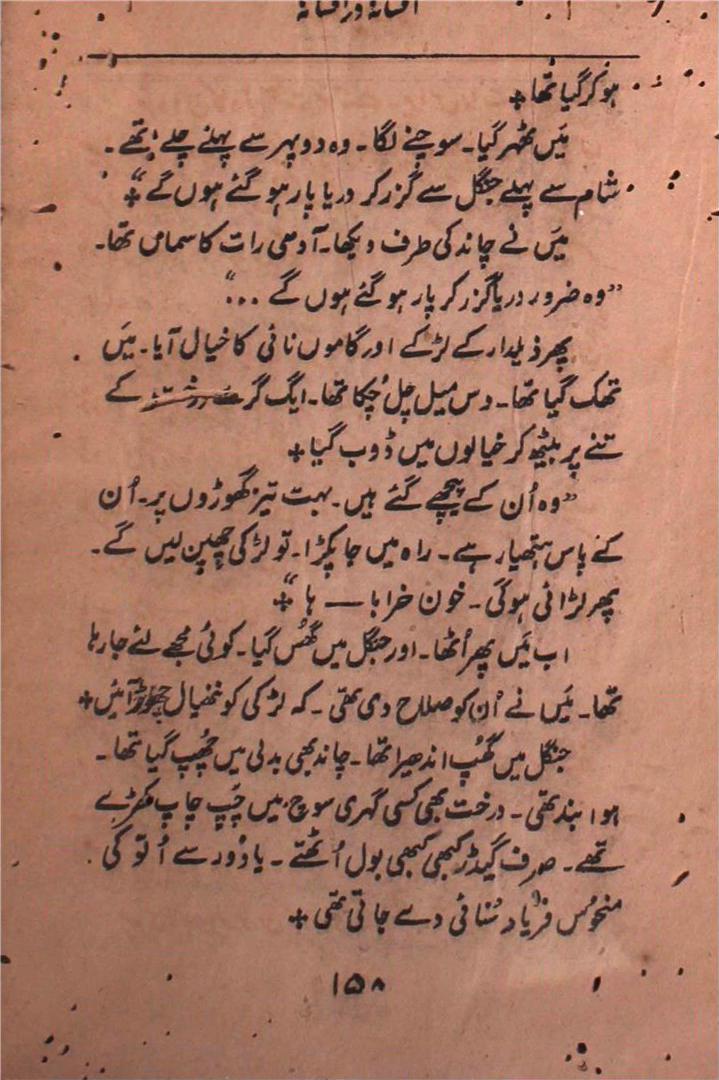 افسانہ در افسانہ
ہو کر گیا تھا ٭
میَں ٹھہر گیا۔ سوچنے لگا۔ وہ دوپہر سے پہلے چلے تھے۔
شام سے پہلے جنگل سے گزر کر دریا پار ہو گئے ہوں گے“ ٭
میَں نے چاند کی طرف دیکھا۔ آدھی رات کا سماں تھا۔
”وہ ضرور دریا گزر کر پار ہو گئے ہوں گے ...“
پھر ذیلدار کے لڑکے اور گاموں نائی کا خیال آیا۔ میَں
تھک گیا تھا۔ دس میل چل چُکا تھا۔ ایگ گر کے
تنے پر بیٹھ کر خیالوں میں ڈوب گیا ٭
”وہ اُن کے پیچھے گئے ہیں۔ بہت تیز گھوڑوں پر۔ اُن
کے پاس ہتھیار ہے۔ راہ میں جا پکڑا۔ تو لڑکی چھین لیں گے۔
پھر لڑائی ہوگی۔ خون خرابا — ہا“ ٭
اب میَں پھر اُٹھا۔ اور جنگل میں گھُس گیا۔ کوئی مُجھے لئے جا رہا
تھا۔ میَں نے اُن کو صلاح دی تھی۔ کہ لڑکی کو ننھیال چھوڑ آئیں ٭
جنگل میں گھُپ اندھیرا تھا۔ چاند بھی بدلی میں چھُپ گیا تھا۔
ہوا بند تھی۔ درخت بھی کسی گہری سوچ میں چُپ چاپ کھڑے
تھے۔ صرف گیدڑ کبھی کبھی بول اُٹھتے۔ یا دُور سے اُلّو کی
منحوُس فریاد سُنائی دے جاتی تھی ٭
۱۵۸